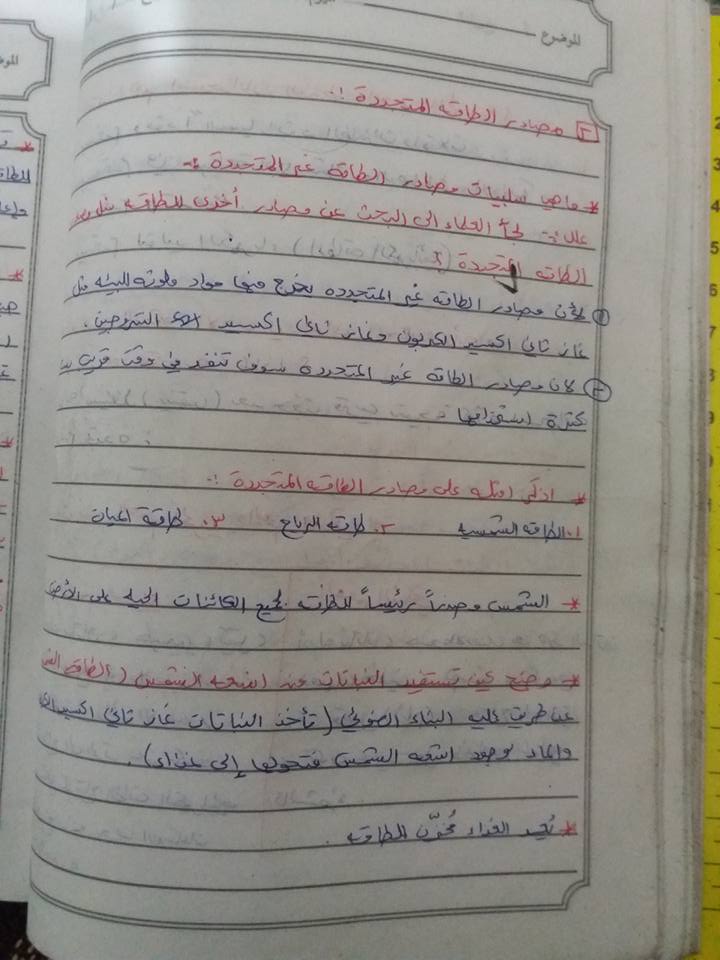 الموضوع
٢ مصادر الطاقه المتجددة :.
* ماهي سلبيات مصادر الطاقة غير المتجددة :-
علل :- لجأ العلماء الى البحث عن مصادر أخرى للطاقه مثل
الطاقه المتجددة ؟
١ لأن مصادر الطاقه غير المتجدده يخرج منها مواد ملوثه للبيئه مثل
غاز ثاني اكسيد الكربون وغاز ثاني اكسيد النتروجين .
٢ لان مصادر الطاقة غير المتجددة سوف تنفد في وقت قريب
كثرة استهزافها
* اذكر امثله على مصادر الطاقه المتجددة :.
١. الطاقه الشمسيه ٢. طاقه الرياح ٣. طاقة المياة
* الشمس مصدراً رئيساً للطاقه لجميع الكائنات الحيه على الأرض
* وضح كيف تستفيد النباتات من اشعه الشمس ( الطاقه
عن طريق عمليه البناء الضوئي ( تأخذ النباتات غاز ثاني اكسيد
والماء بوجود اشعه الشمس فتحولها إلى غذاء ) .
* يُعيد الغذاء مخزّن للطاقه .